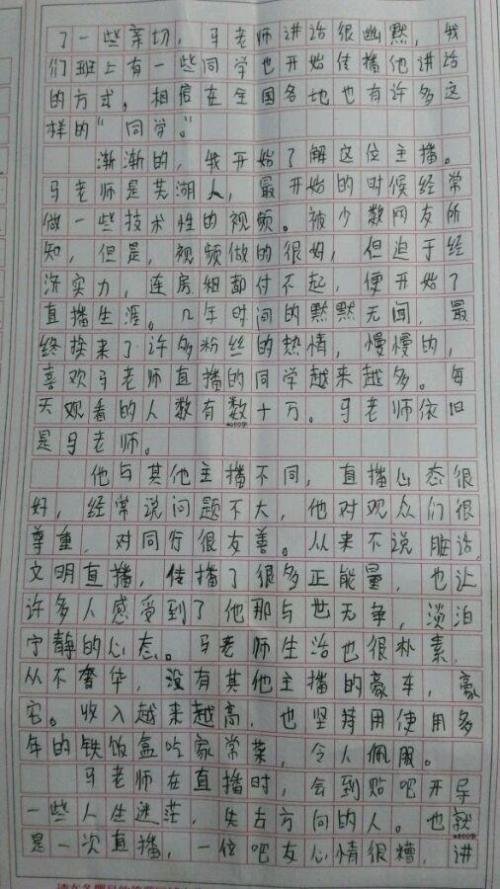 了一些亲切，马老师讲话很幽默，我
们班上有一些同学也开始传播他讲话
的方式，相信在全国各地也有许多这
样的“同学”。
渐渐的，我开始了解这位主播。
马老师是芜湖人，最开始的时候经常
做一些技术性的视频。被少数网友所
知，但是，视频做的很好，但迫于经
济实力，连房租都付不起，便开始了
直播生涯。几年时间的默默无闻，最
终换来了许多粉丝的热情，慢慢的，
喜欢马老师直播的同学越来越多。每
天观看的人数有数十万。马老师依旧
是马老师。
他与其他主播不同，直播心态很
好，经常说问题不大，他对观众们很
尊重，对同行很友善。从来不说脏话。
文明直播，传播了很多正能量，也让
许多人感受到了他那与世无争，淡泊
宁静的心态。马老师生活也很朴素，
从不奢华，没有其他主播的豪车，豪
宅。收入越来越高，也坚持用使用多
年的铁饭盒吃家常菜，令人佩服。
马老师在直播时，会到贴吧开导
一些人生迷茫，失去方向的人。也就
是一次直播，一位吧友心情很糟，讲